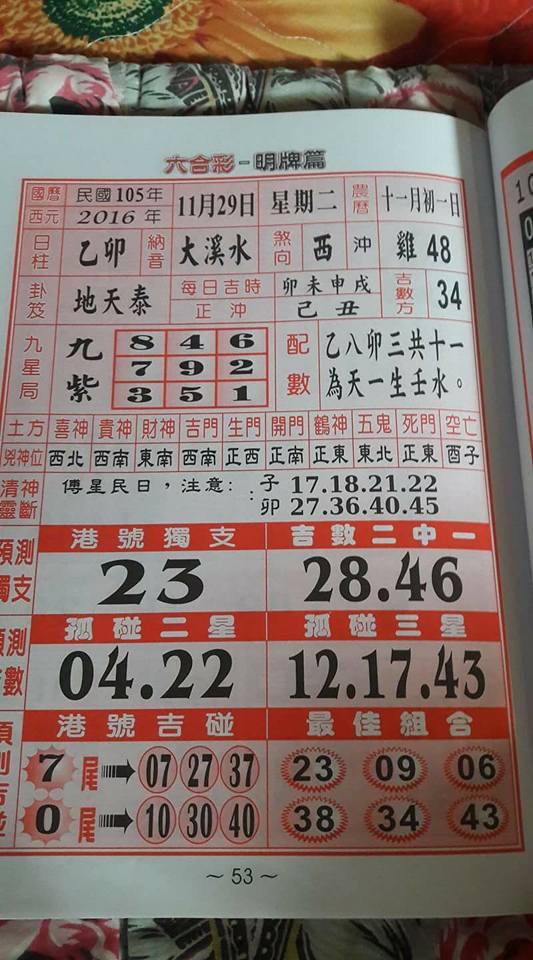 六合彩-明牌篇
國曆 民國105年 11月29日 星期二 農曆 十一月初一日
西元 2016年
日柱 乙卯 納音 大溪水 煞向 西 沖 雞48
卦笈 地天泰 每日吉時 卯未申戌 吉數方 34
正沖 己丑
九星局 九紫 8 4 6 配數 乙八卯三共十一
7 9 2 為天一生壬水。
3 5 1
土方 喜神 貴神 財神 吉門 生門 開門 鶴神 五鬼 死門 空亡
凶神位 西北 西南 東南 西南 正西 正南 正東 東北 正東 酉子
清神 傅星民日,注意: 子 17.18.21.22
靈斷 卯 27.36.40.45
預測獨支 港號獨支 吉數二中一
23 28.46
預測 孤碰二星 孤碰三星
數 04.22 12.17.43
港號吉碰 最佳組合
7尾 07 27 37 23 09 06
0尾 10 30 40 38 34 43
~53~
10